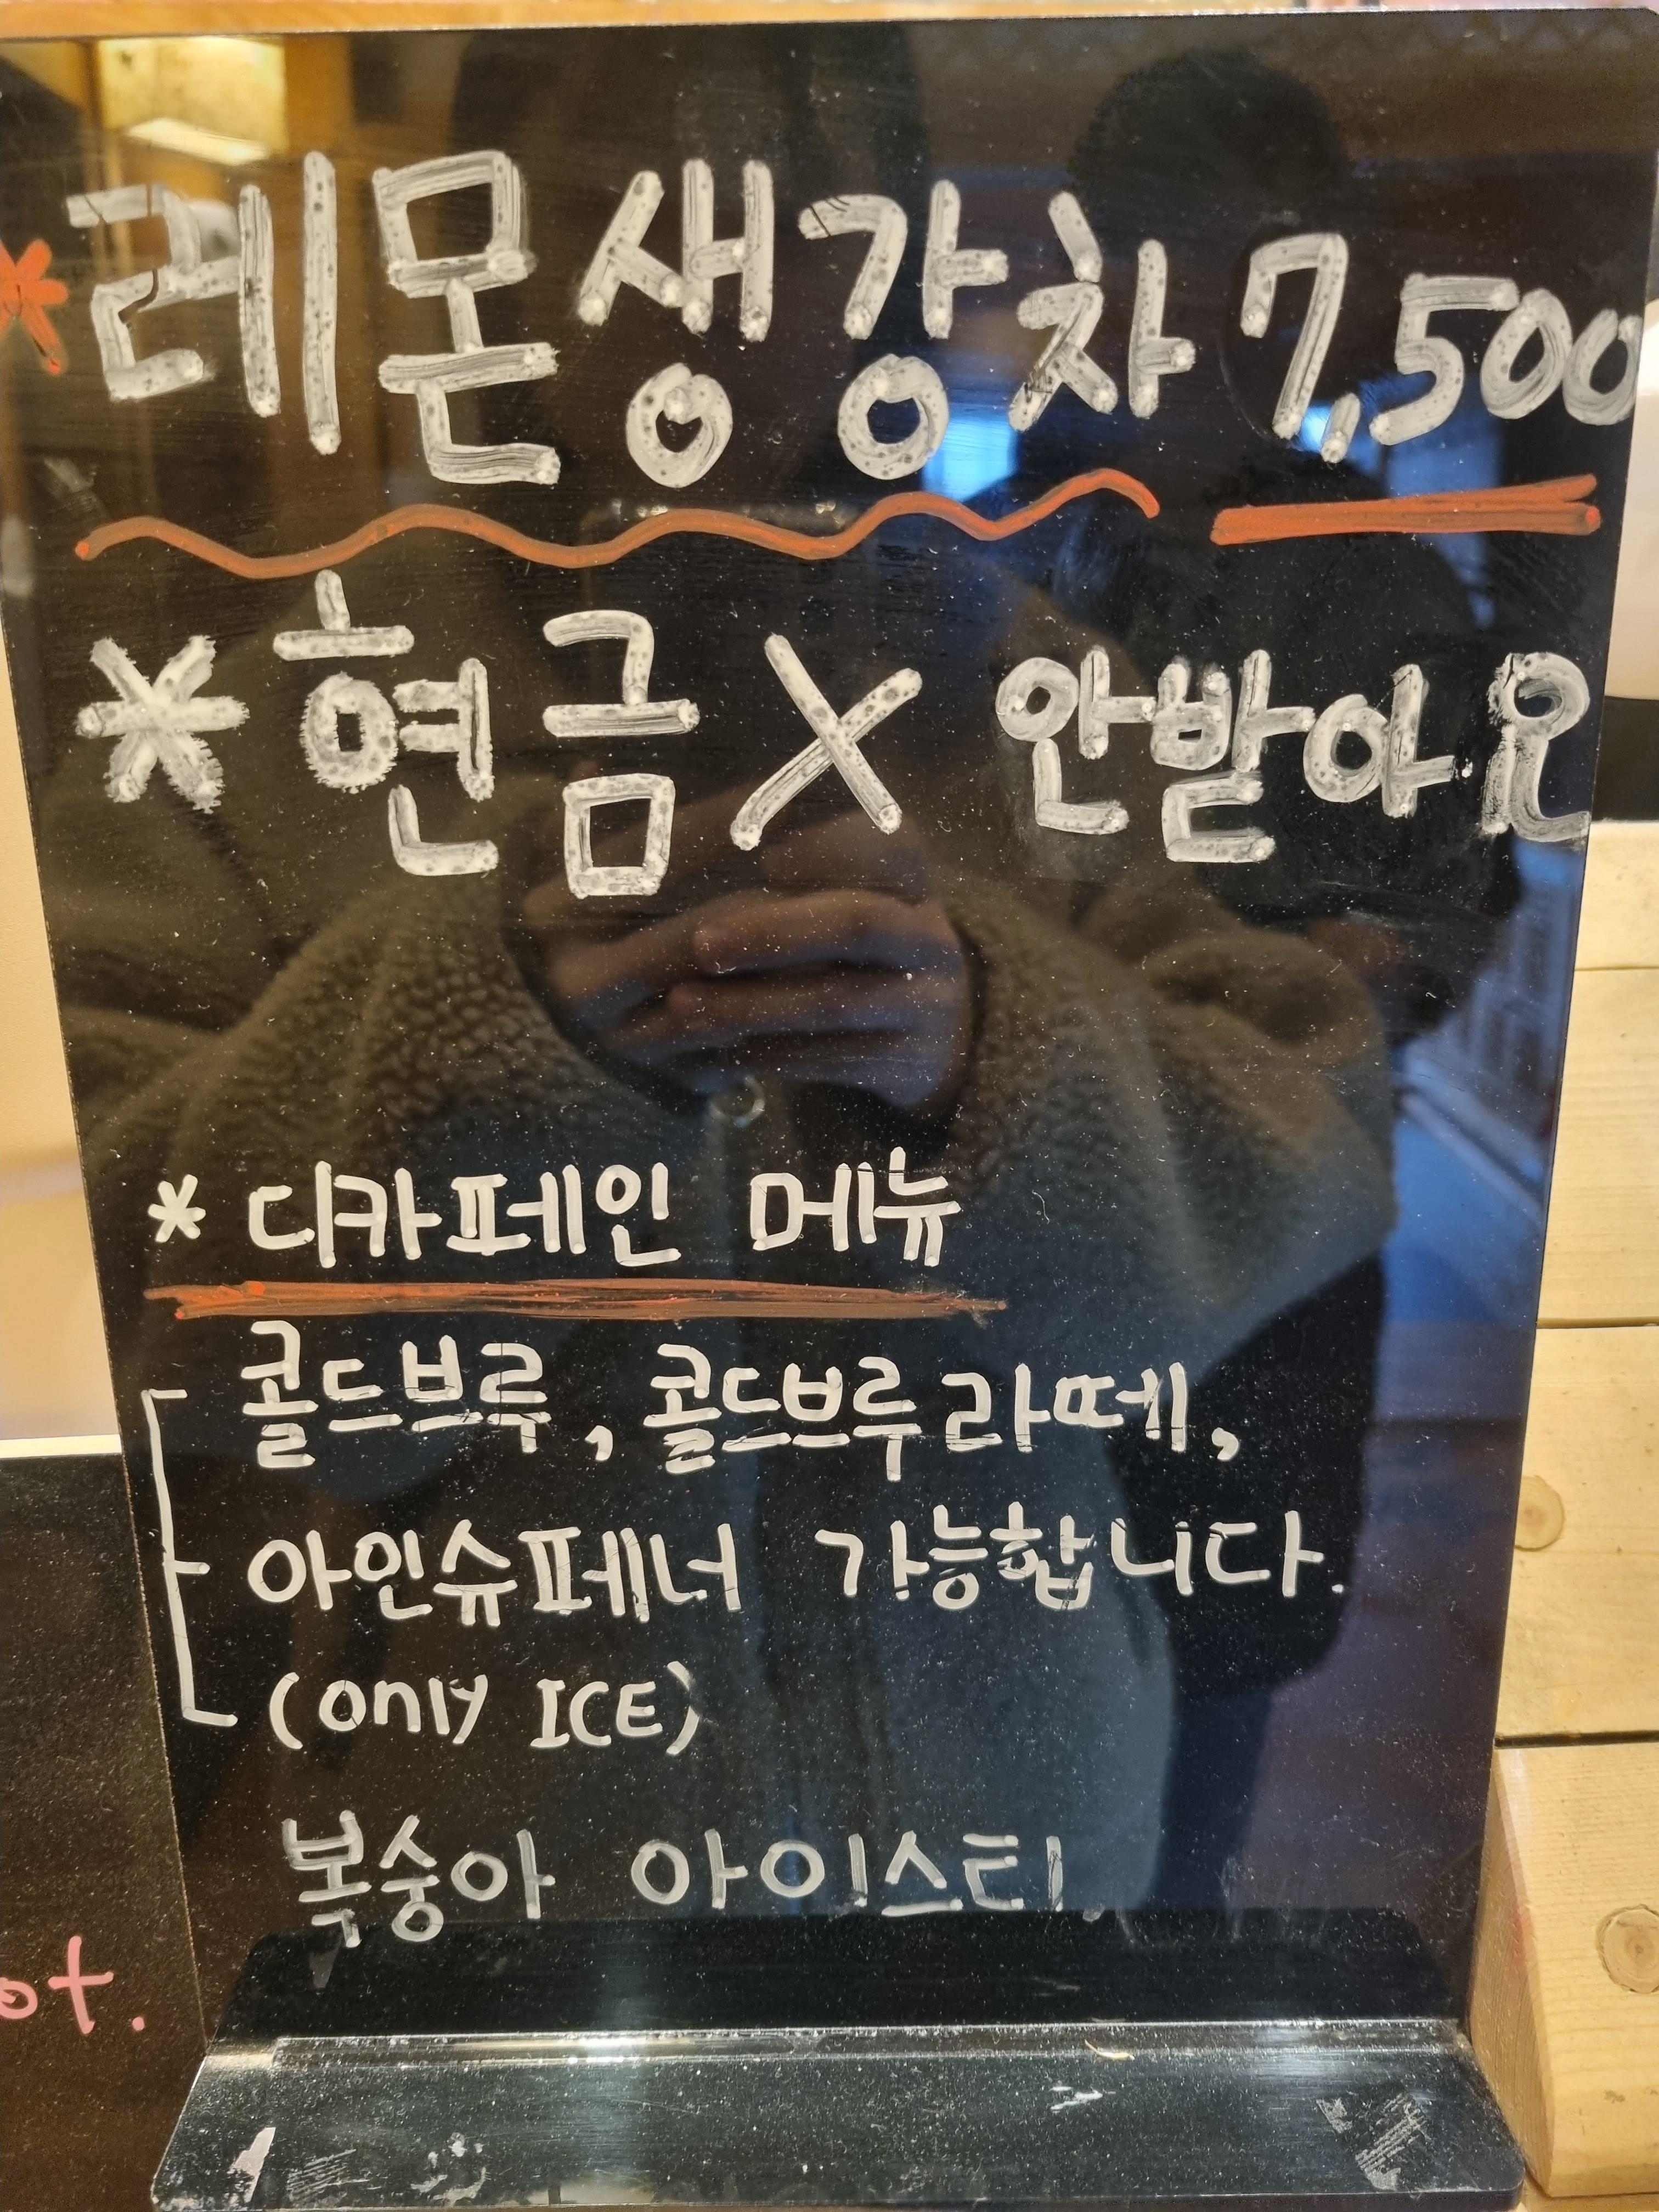 * 레몬생강차 7,500
* 현금 X 안발아요
* 디카페인 메뉴
콜드브루, 콜드브루라떼,
아인슈페너 가능합니다.
(only ICE)
복숭아 아이스티.
ot.